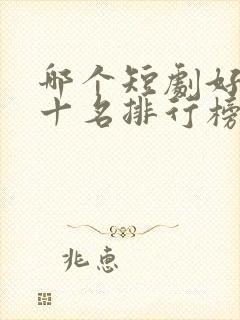 哪个短剧好
十名排行榜
兆惠